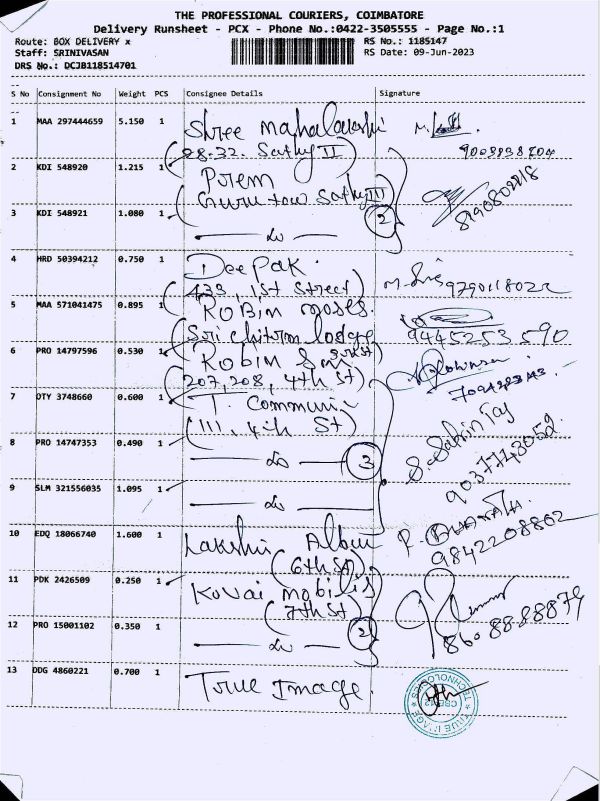 THE PROFESSIONAL COURIERS, COIMBATORE
Delivery Runsheet - PCX - Phone No.:0422-3505555 - Page No.:1
Route: BOX DELIVERY x
RS No.: 1185147
Staff: SRINIVASAN
RS Date: 09-Jun-2023
DRS No.: DCJB118514701
S No Consignment No Weight PCS Consignee Details Signature
1 MAA 297444659 5.150 1 Shree mahalakshmi
28-32. Sathy II
2 KDI 548920 1.215 1 Prem
Guru tow Sathy III
3 KDI 548921 1.080 1 2
4 HRD 50394212 0.750 1 Deepak.
433, 1st Street 9790118022
5 MAA 571041475 0.895 1 Robin moses.
Sri chitra lodge 9445253590
6 PRO 14797596 0.530 1 Robin
207,208, 4th St
7 OTY 3748660 0.600 1 T. Communi
111, 4th St
8 PRO 14747353 0.490 1 3 S. Sabrin Taj
9037743052
9 SLM 321556035 1.095 1
10 EDQ 18066740 1.600 1 Lakshmi Album
6th St 9842208862
11 PDK 2426509 0.250 1 Kovai mobiles
7th St
12 PRO 15001102 0.350 1 2
13 DDG 4860221 0.700 1 True Image.
TRUE IMAGE TECHNOLOGIES